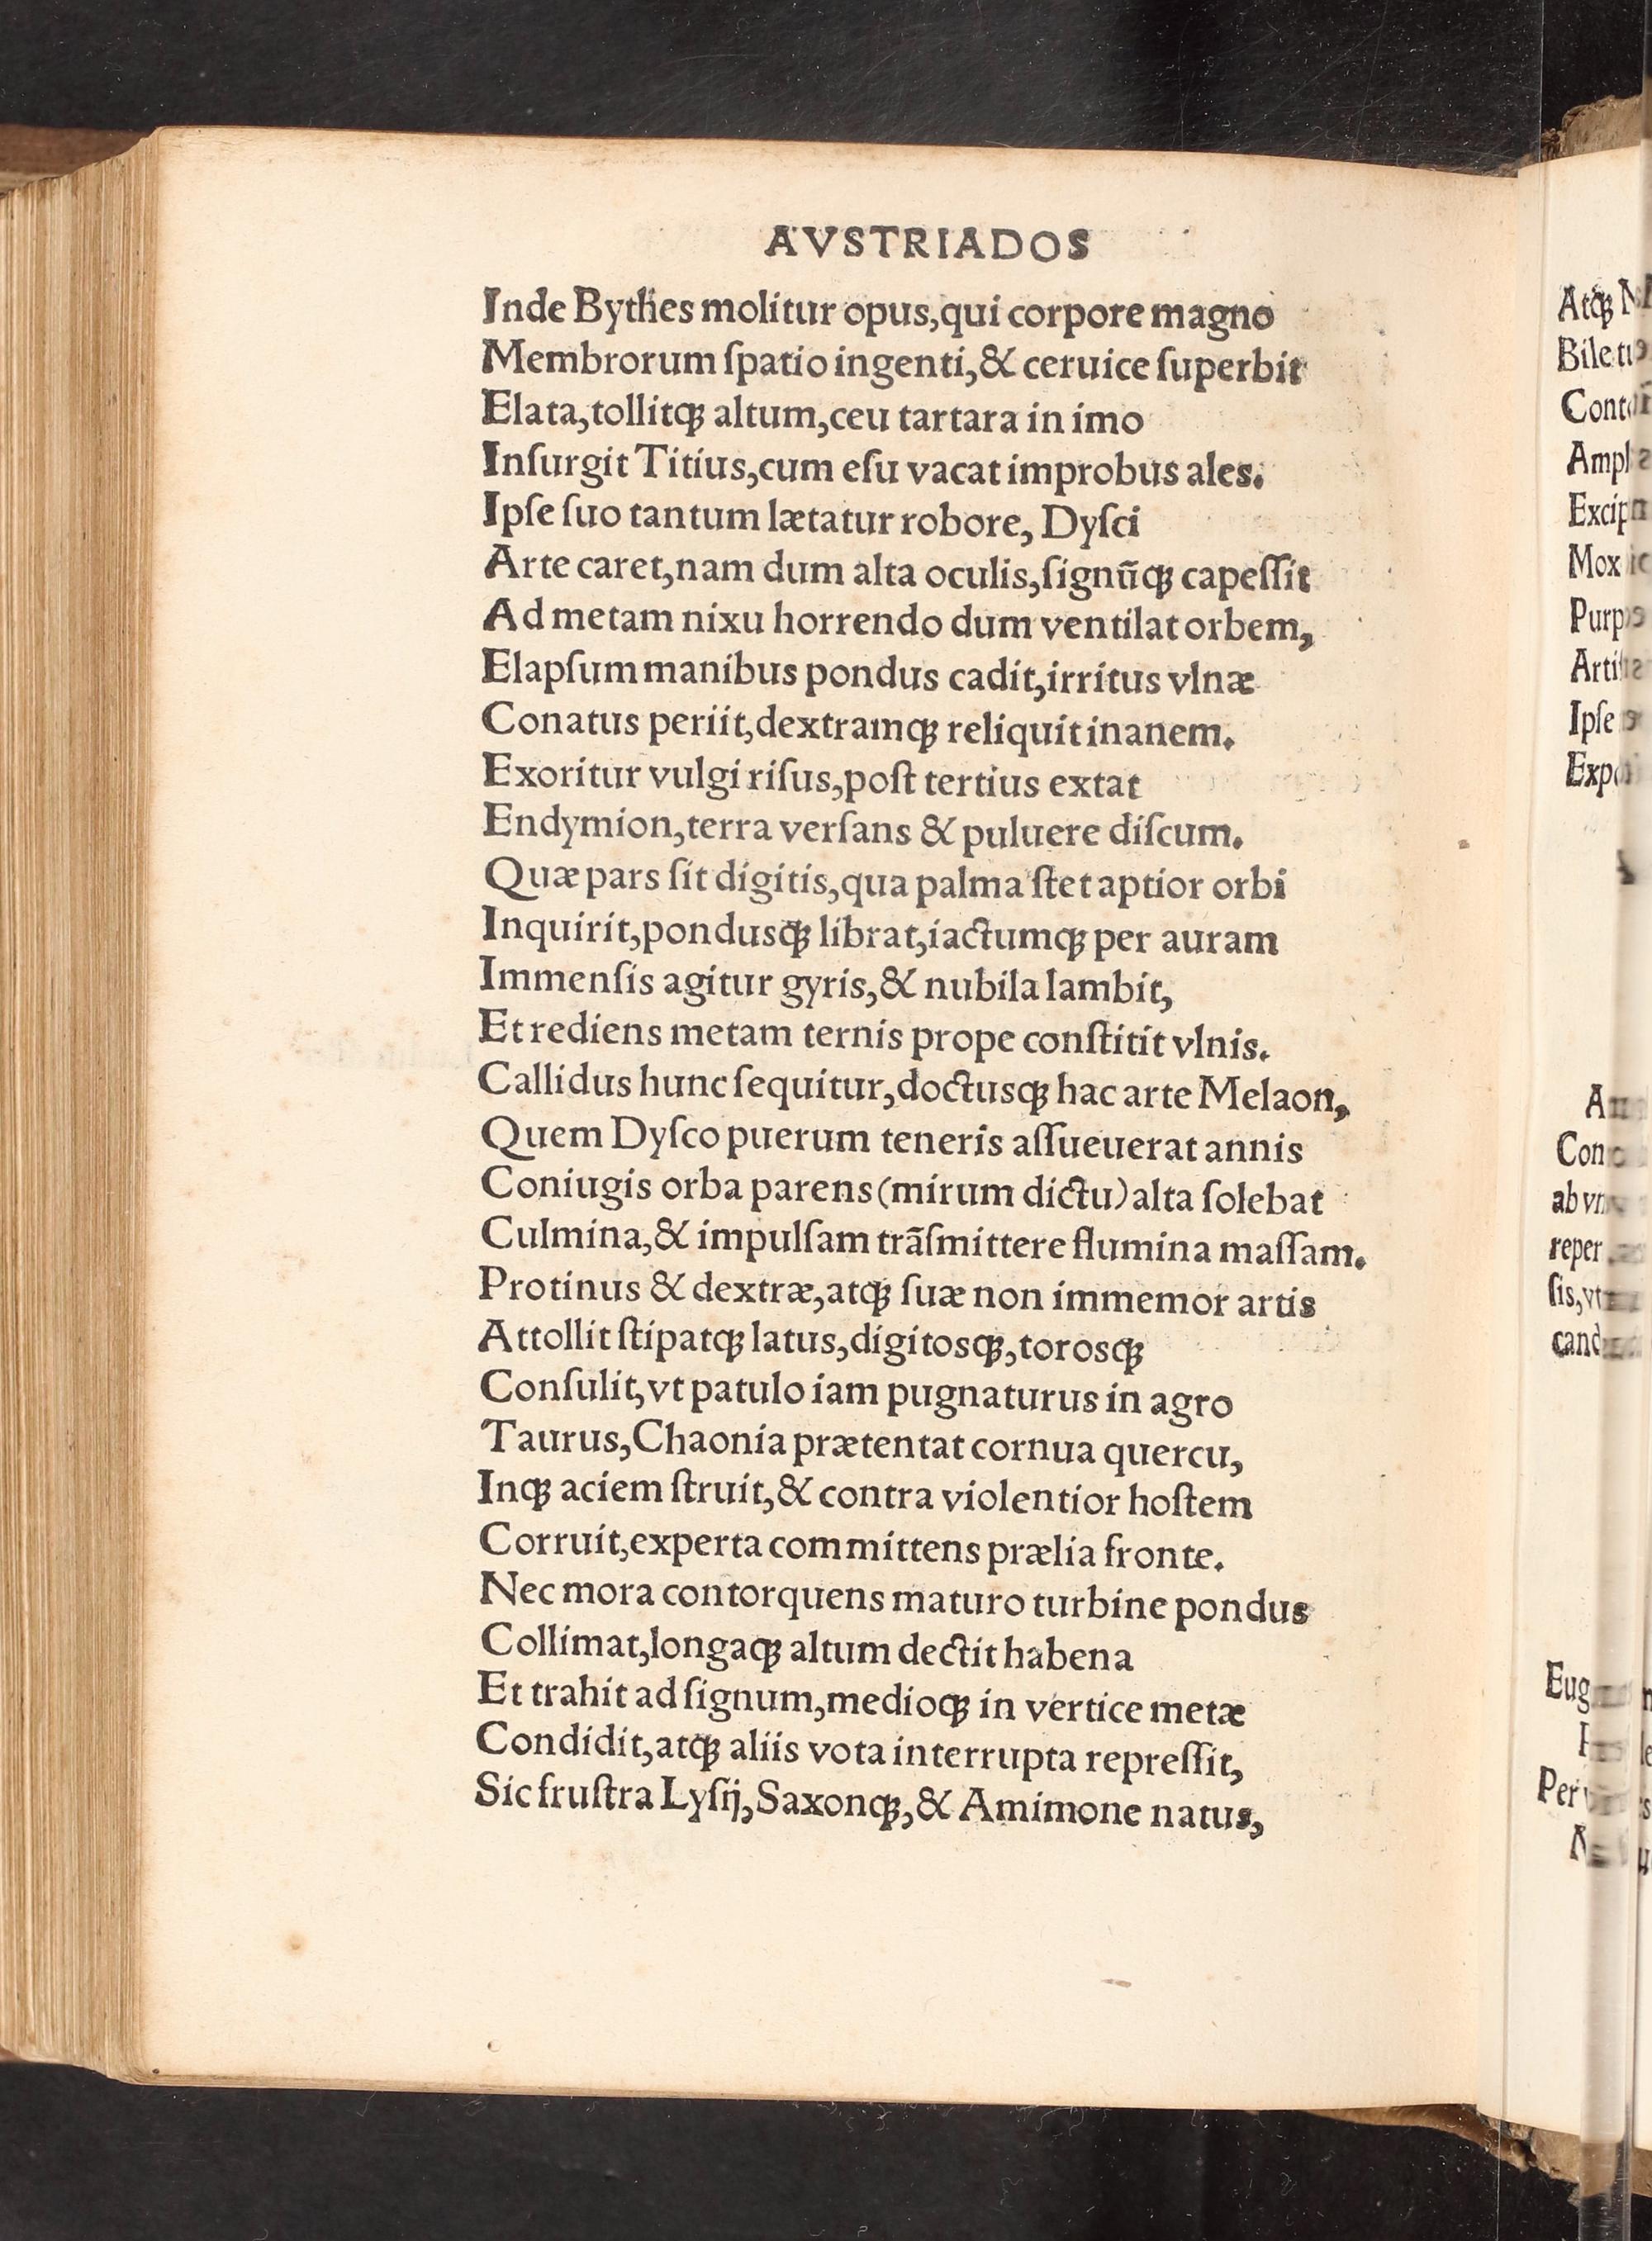 AVSTRIADOS
Inde Bythes molitur opus,qui corpore magno
Membrorum ſpatio ingenti,& ceruice ſuperbit
Elata,tollitqꝫ altum,ceu tartara in imo
Inſurgit Titius,cum eſu vacat improbus ales.
Ipſe ſuo tantum lætatur robore, Dyſci
Arte caret,nam dum alta oculis,ſignũqꝫ capeſſit
Ad metam nixu horrendo dum ventilat orbem,
Elapſum manibus pondus cadit,irritus vlnæ
Conatus periit,dextramqꝫ reliquit inanem.
Exoritur vulgi riſus,poſt tertius extat
Endymion,terra verſans & puluere diſcum.
Quæ pars ſit digitis,qua palma ſtet aptior orbi
Inquirit,pondusqꝫ librat,iactumqꝫ per auram
Immenſis agitur gyris,& nubila lambit,
Et rediens metam ternis prope conſtitit vlnis.
Callidus hunc ſequitur,doctusqꝫ hac arte Melaon,
Quem Dyſco puerum teneris aſſueuerat annis
Coniugis orba parens(mirum dictu)alta ſolebat
Culmina,& impulſam trãſmittere flumina maſſam.
Protinus & dextræ,atqꝫ ſuæ non immemor artis
Attollit ſtipatqꝫ latus,digitosqꝫ,torosqꝫ
Conſulit,vt patulo iam pugnaturus in agro
Taurus,Chaonia prætentat cornua quercu,
Inqꝫ aciem ſtruit,& contra violentior hoſtem
Corruit,experta committens prælia fronte.
Nec mora contorquens maturo turbine pondus
Collimat,longaqꝫ altum dectit habena
Et trahit ad ſignum,medioqꝫ in vertice metæ
Condidit,atqꝫ aliis vota interrupta repreſſit,
Sic fruſtra Lyſij,Saxonqꝫ,& Amimone natus,
Atqꝫ
Mox
Ipſe